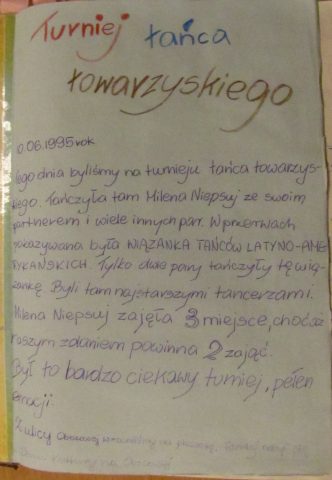 Turniej tańca
towarzyskiego
0.06.1995 rok
Tego dnia byliśmy na turnieju tańca towarzys-
kiego. Tańczyła tam Milena Niepsuj ze swoim
partnerem i wiele innych par. W przerwach
pokazywana była WIĄZANKA TAŃCÓW LATYNO-AME
RYKAŃSKICH. Tylko dwie pary tańczyły tę wią-
zankę. Byli tam najstarszymi tancerzami.
Milena Niepsuj zajęła 3 miejsce, chociaż
naszym zdaniem powinna 2 zająć.
Był to bardzo ciekawy turniej, pełen
emocji.
Z ulicy wróciliśmy na